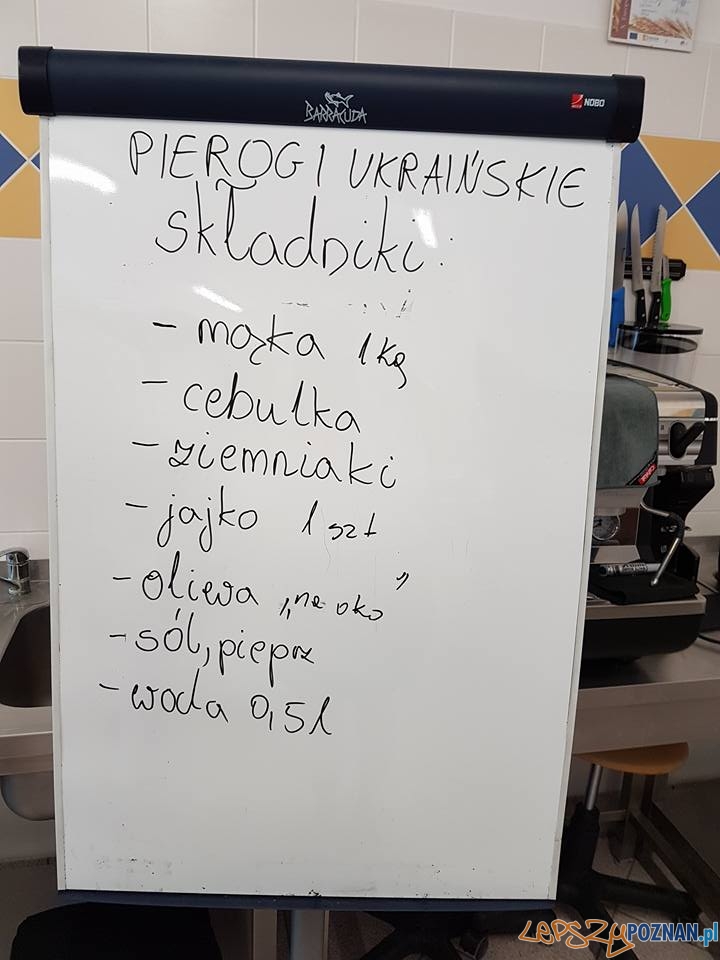 BARRACUDA
NOBO
PIEROGI UKRAIŃSKIE
składniki:
- mąka 1kg
- cebulka
- ziemniaki
- jajko 1 szt
- oliwa „na oko”
- sól, pieprz
- woda 0,5l
LEPSZYPOZNAN.pl